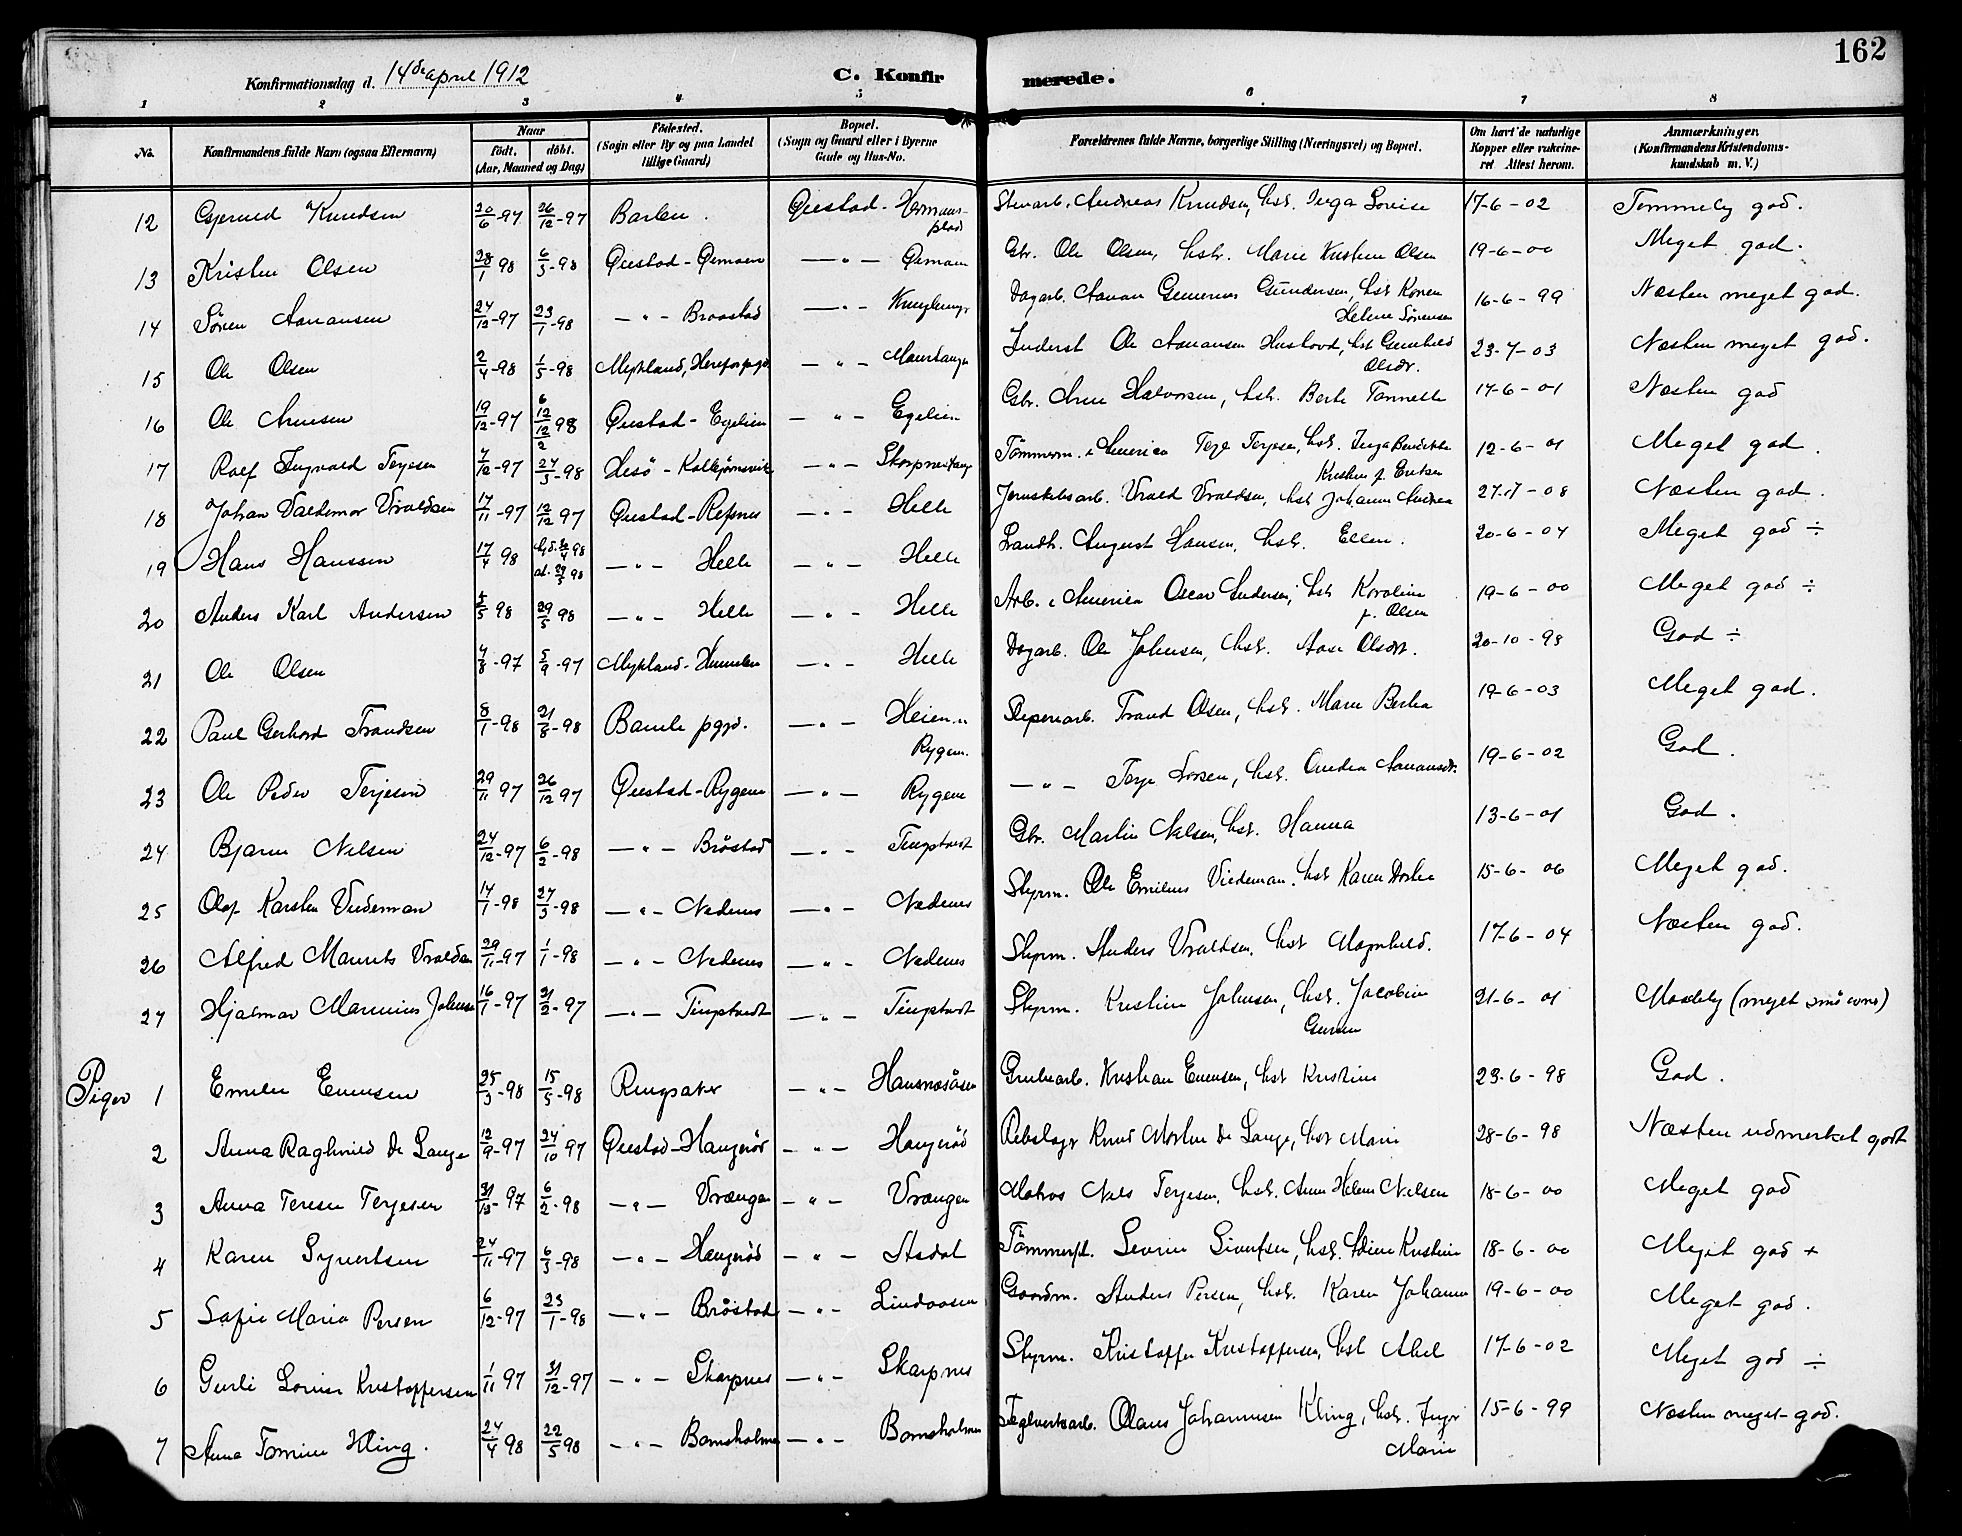 162
Konfirmationsdag d. 14de april 1912
C. Konfirmerede.
1 2 3 4 5 6 7 8
No. Konfirmandens fulde Navn (ogsaa Efternavn) Naar födt. döbt. (Aar, Maaned og Dag) Födested. (Sogn eller By og paa Landet tillige Gaard) Bopæl. (Sogn og Gaard eller i Byerne Gade og Hus-No. Forældrenes fulde Navne, borgerlige Stilling (Næringsvei) og Bopæl. Om havt de naturlige Kopper eller vakcineret. Attest herom. Anmærkninger. (Konfirmandens Kristendomskundskab m. V.)
12 Gjerued Knudsen 20/6-97 26/12-97 Barbu. Øiestad-Hermansplads Stenarb. Andreas Knudsen, hst. Inga Lovise 17-6-02 Temmelig god.
13 Kristen Olsen 28/1 98 6/3-98 Øiestad-Gjemoen — " — Gjemoen Gbr. Ole Olsen, hst. Marie Kristine Olsen 19-6-00 Meget god.
14 Sören Aanansen 24/12-97 23/1-98 — " — Braastad — " — Dagarb. Aanan Gunerius Gundersen, hst. Karen Helene Sörensen 16-6-99 Næsten meget god.
15 Ole Olsen 2/4-98 1/5-98 Mykland, Herefos pgjd. — " — Inderst Ole Aanansen, hst Gunhild Olsdr. 23-7-03 Næsten meget god.
16 Ole Arnesen 19/12-97 6/12 12/2 98 Øiestad-Egelien — " — Egelien Gbr. Arne Halvorsen, hst. Berte Tonnette 17-6-01 Næsten god
17 Rolf Ingvald Terjesen 7/12-97 27/3-98 Hisö-Kolbjörnsvik — " — Tömmerm. i America Terje Terjesen, hst. Inga Bendikte Kristine f. Eriksen 12-6-01 Meget god.
18 Johan Valdemar Vraldsen 17/11-97 12/12 97 Øiestad-Refsnes — " — Helle Jernskibsarb. Vrald Vraldsen, hst Johanne Andrea 27-7-08 Næsten god.
19 Hans Hanssen 17/4 98 — " — Helle — " — Helle Strandk. August Hansen, hst. Ellen. 20-6-04 Meget god ÷
20 Anders Karl Andersen 5/5 98 29/5 98 — " — Helle — " — Helle Arb. i America Oscar Andersen, hst Karoline f. Olsen 19-6-00 Meget god ÷
21 Ole Olsen 4/8-97 5/9-97 Mykland- — " — Helle Dagarb. Ole Johnsen, hst. Aase Olsdtr. 20-10-98 God ÷
22 Paul Gerhard Trondsen 8/1-98 31/5-98 Bamle pgjd. — " — Heien Rygene. Sliperiarb. Trond Olsen, hst. Marie Bertea 19-6-03 Meget god.
23 Ole Peder Terjesen 29/11 97 26/12 97 Øiestad-Rygene — " — Rygene — " — Terje Larsen, hst. Andrea Aanansdtr. 19-6-02 God.
24 Bjarne Nilsen 24/12-97 6/2-98 — " — Bröstad — " — Tingstveit Gbr. Martin Nilsen, hst. Hanna 13-6-01 God.
25 Olaf Karsten Viedeman 14/1-98 27/3-98 — " — Nedenes — " — Nedenes Styrm. Ole Emilius Viedeman, hst Karen Dortea 15-6-06 Meget god.
26 Alfred Maurits Vraldsen 29/11-97 1/1-98 — " — Nedenes — " — Nedenes Styrm. Anders Vraldsen, hst Magnhild. 17-6-04 Næsten god.
27 Hjalmar Marinius Johnsen 16/1-97 21/2-97 — " — Tingstveit — " — Tingstveit Styrm. Kristine Johnsen, hst. Jacobine Gurine 21-6-01 Maadelig (meget små evner)
Piger 1 Emilie Evensen 25/3-98 15/5-98 Ringsaker — " — Hansnesåsen Grubearb. Kristian Evensen, hst Kristine 23-6-98 God.
2 Anna Raghnild de Lange 12/9-97 24/10 97 Øiestad-Haugeröd — " — Haugeröd Rebslager Knud Morten de Lange, hst Marie 28-6-98 Næsten udmerket godt
3 Anna Terese Terjesen 31/12-97 6/2-98 — " — Vrængen — " — Vrængen Matros Niels Terjesen, hst. Anne Helene Nilsen 18-6-00 Meget god
4 Karen Syvertsen 24/11-97 6/3-98 — " — Haugeröd — " — Asdal Tömmerfl. Severin Sivertsen, hst. Edine Kristine 18-6-00 Meget god +
5 Sofie Marie Persen 6/12-97 23/1-98 — " — Bröstad — " — Lindaasen Gaardm. Anders Persen, hst. Karen Johanne 19-6-00 Meget god.
6 Gurli Lovise Kristoffersen 1/11 97 31/12-97 — " — Skarpnes — " — Skarpnes Styrm. Kristoffer Kristoffersen, hst Abel 17-6-02 Meget god ÷
7 Anna Tomine Kling. 24/4 98 22/5 98 — " — Bomsholmen — " — Bomsholmen Teglverksarb. Olaus Johannesen Kling, hst. Inger Marie 15-6-99 Næsten meget god.